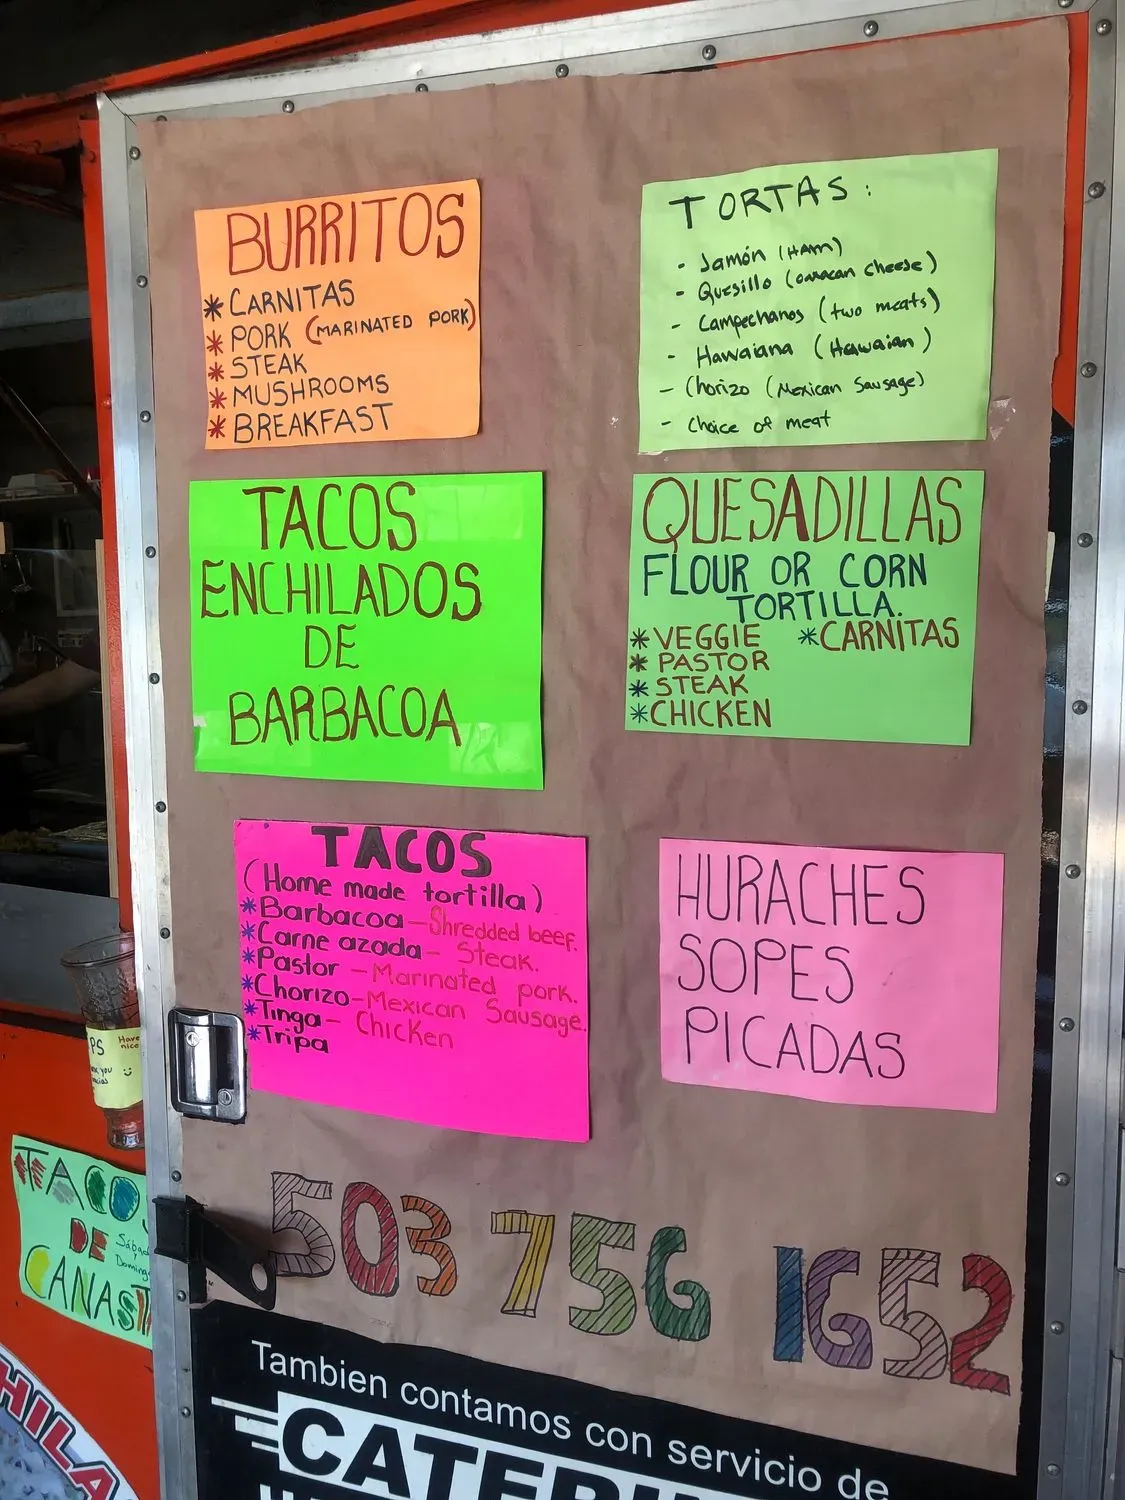 BURRITOS
* CARNITAS
* PORK (MARINATED PORK)
* STEAK
* MUSHROOMS
* BREAKFAST
TORTAS:
- Jamón (HAM)
- Quesillo (oaxacan cheese)
- Campechanos (two meats)
- Hawaiana (Hawaian)
- Chorizo (Mexican Sausage)
- Choice of meat
TACOS
ENCHILADOS
DE
BARBACOA
QUESADILLAS
FLOUR OR CORN
TORTILLA.
* VEGGIE * CARNITAS
* PASTOR
* STEAK
* CHICKEN
TACOS
(Home made tortilla)
* Barbacoa - Shredded beef.
* Carne azada - Steak.
* Pastor - Marinated pork.
* Chorizo - Mexican Sausage.
* Tinga - Chicken
* Tripa
HURACHES
SOPES
PICADAS
Have
nice
TACOS
DE
CANAST
503 756 1652
Tambien contamos con servicio de